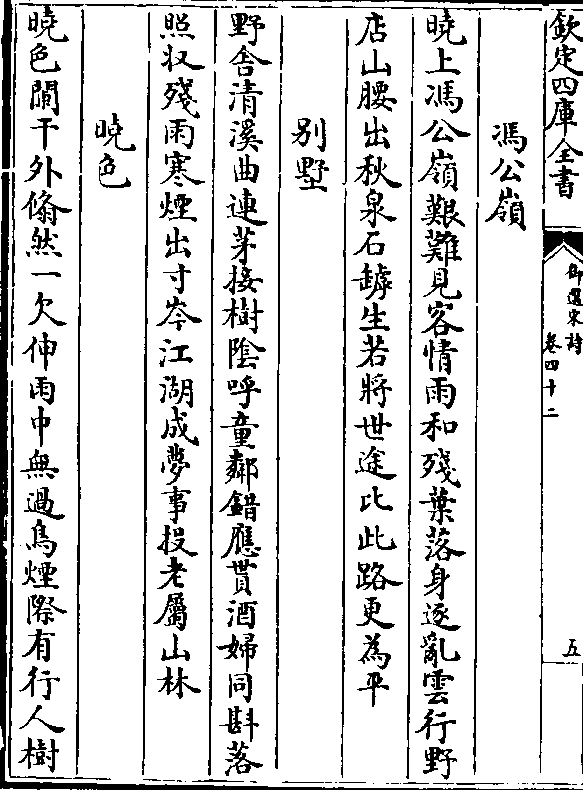 欽定四庫全書
御選宋詩
卷四十二
五
馮公嶺
曉上馮公嶺艱難見客情雨和殘葉落身逐亂雲行野
店山腰出秋泉石罅生若將世途比此路更為平
別墅
野舍清溪曲連茅接樹陰呼童鄰錯應貰酒婦同斟落
照収殘雨寒煙出寸岑江湖成夢事投老屬山林
曉色
曉色闌干外翛然一欠伸雨中無過鳥煙際有行人樹